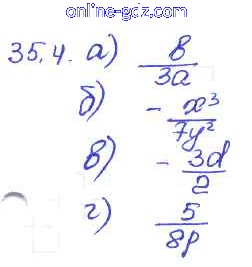 online-gdz.com
35.4. а) 8/3a
б) - x³/7y²
в) - 3d/2
г) 5/8p